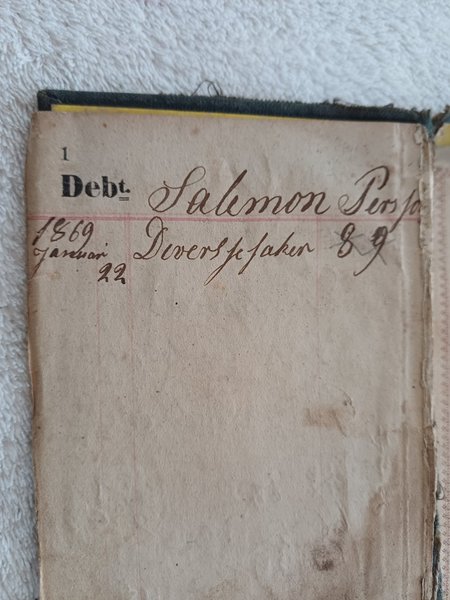 1
Debt. Salemon Persso
1869
Januar Diversse saker 8 9
22